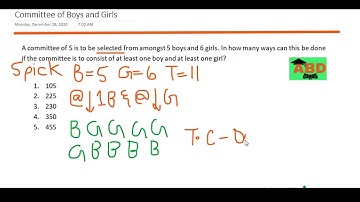 Committee of Boys and Girls
Monday, December 28, 2020 7:02 AM
A committee of 5 is to be selected from amongst 5 boys and 6 girls. In how many ways can this be done
if the committee is to consist of at least one boy and at least one girl?
5 pick B=5 G=6 T=11
@↓1B & @↓G
1. 105
2. 225
3. 230
4. 350
5. 455
B G G G G
G B B B B
T·C-D
ABD